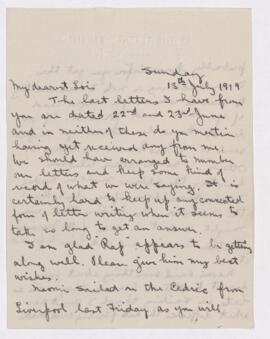 Sunday
13th July 1919
My dearest Lois
The last letters I have from
you are dated 22nd and 23rd June
and in neither of these do you mention
having yet received any from me.
We should have arranged to number
our letters and keep some kind of
record of what we were saying. It is
certainly hard to keep up any connected
form of letter writing when it seems to
take so long to get an answer.
I am glad "Raf" appears to be getting
along well. Please give him my best
wishes.
Naomi sailed on the Cedric from
Liverpool last Friday as you will